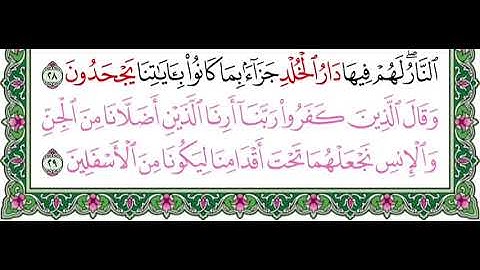 ٱلنَّارُ ۖ لَهُمْ فِيهَا دَارُ ٱلْخُلْدِ جَزَآءًۢ بِمَا كَانُوا۟ بِـَٔايَـٰتِنَا يَجْحَدُونَ ٢٨
وَقَالَ ٱلَّذِينَ كَفَرُوا۟ رَبَّنَآ أَرِنَا ٱلَّذَيْنِ أَضَلَّانَا مِنَ ٱلْجِنِّ
وَٱلْإِنسِ نَجْعَلْهُمَا تَحْتَ أَقْدَامِنَا لِيَكُونَا مِنَ ٱلْأَسْفَلِينَ ٢٩